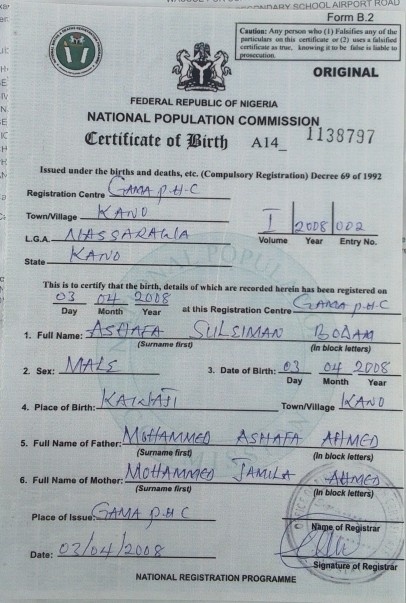 SECONDARY SCHOOL AIRPORT ROAD
Form B.2
Caution: Any person who (1) Falsifies any of the
particulars on this certificate or (2) uses a falsified
certificate as true, knowing it to be false is liable to
prosecution.
ORIGINAL
FEDERAL REPUBLIC OF NIGERIA
NATIONAL POPULATION COMMISSION
Certificate of Birth A14_ 1138797
Issued under the births and deaths, etc. (Compulsory Registration) Decree 69 of 1992
Registration Centre GAMA P.H.C
Town/Village KANO
I 2008 002
L.G.A. NASSARAWA
Volume Year Entry No.
State KANO
This is to certify that the birth, details of which are recorded herein has been registered on
03 04 2008 at this Registration Centre GAMA P.H.C
Day Month Year
1. Full Name: ASHAFA SULEIMAN BODAM
(Surname first) (In block letters)
2. Sex: MALE 3. Date of Birth: 03 04 2008
Day Month Year
4. Place of Birth: KAWAJI Town/Village KANO
5. Full Name of Father: MOHAMMED ASHAFA AHMED
(Surname first) (In block letters)
6. Full Name of Mother: MOHAMMED JAMILA AHMED
(Surname first) (In block letters)
Place of Issue: GAMA P.H.C
Name of Registrar
Date: 03/04/2008
Signature of Registrar
NATIONAL REGISTRATION PROGRAMME